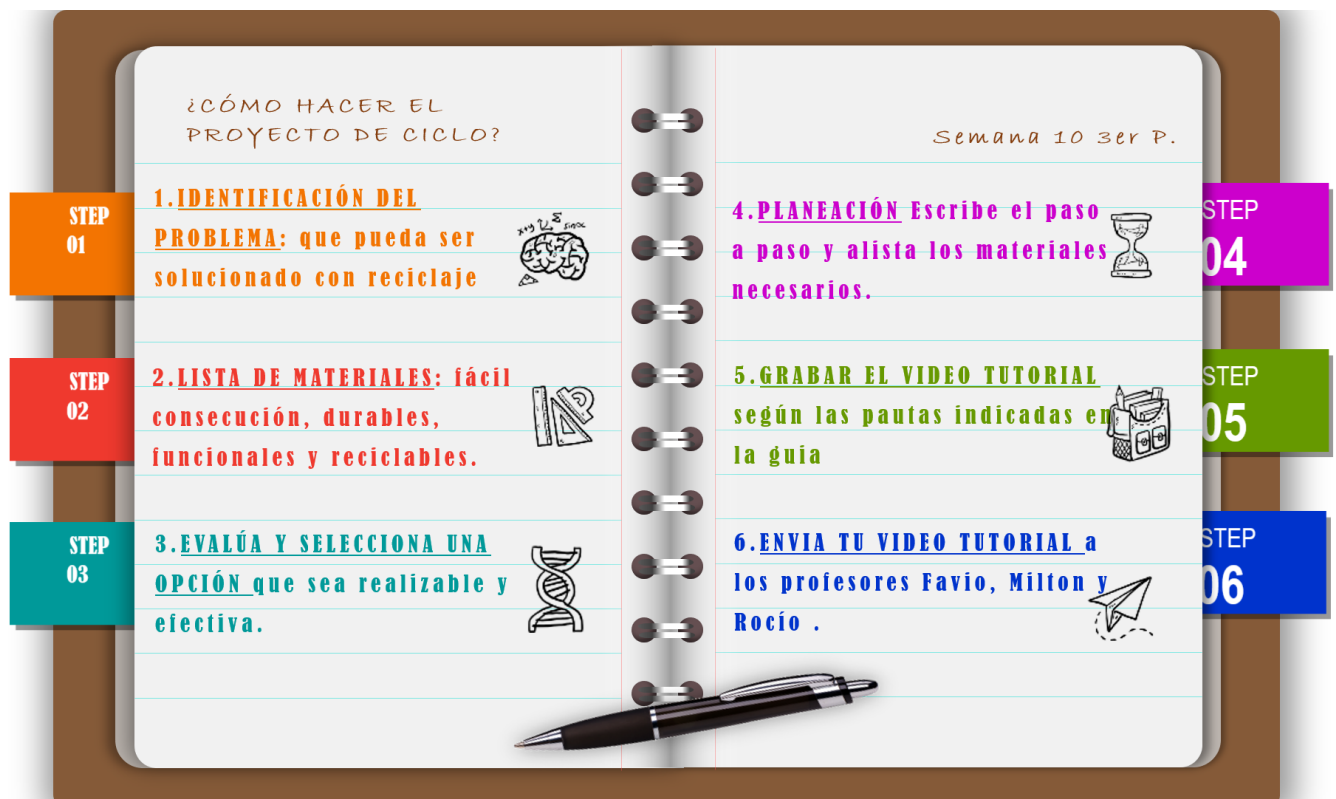 ¿CÓMO HACER EL
PROYECTO DE CICLO?
STEP
01
1.IDENTIFICACIÓN DEL
PROBLEMA: que pueda ser
solucionado con reciclaje
x+y Σ sinα
STEP
02
2.LISTA DE MATERIALES: fácil
consecución, durables,
funcionales y reciclables.
STEP
03
3.EVALÚA Y SELECCIONA UNA
OPCIÓN que sea realizable y
efectiva.
Semana 10 3er P.
4.PLANEACIÓN Escribe el paso
a paso y alista los materiales
necesarios.
STEP
04
5.GRABAR EL VIDEO TUTORIAL
según las pautas indicadas en
la guía
STEP
05
6.ENVIA TU VIDEO TUTORIAL a
los profesores Favio, Milton y
Rocío .
STEP
06